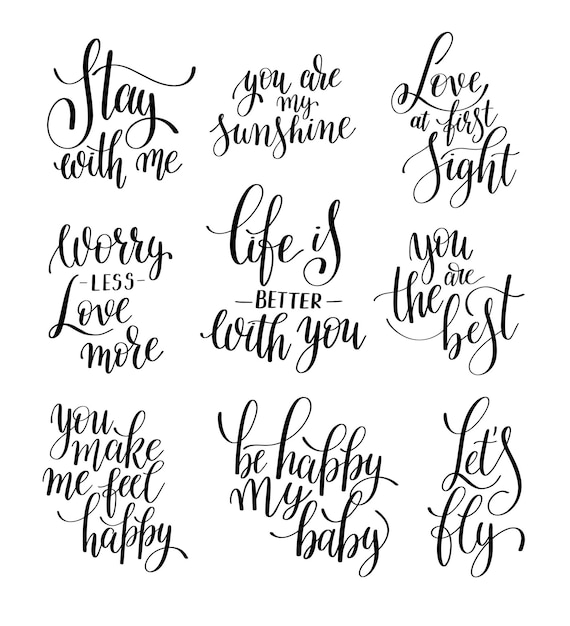 Stay
with me
you are
my
sunshine
Love
at first
Sight
worry
-LESS-
Love
more
life is
-BETTER-
with you
you
are
the
best
you
make
me feel
happy
be happy
my
baby
Let's
fly